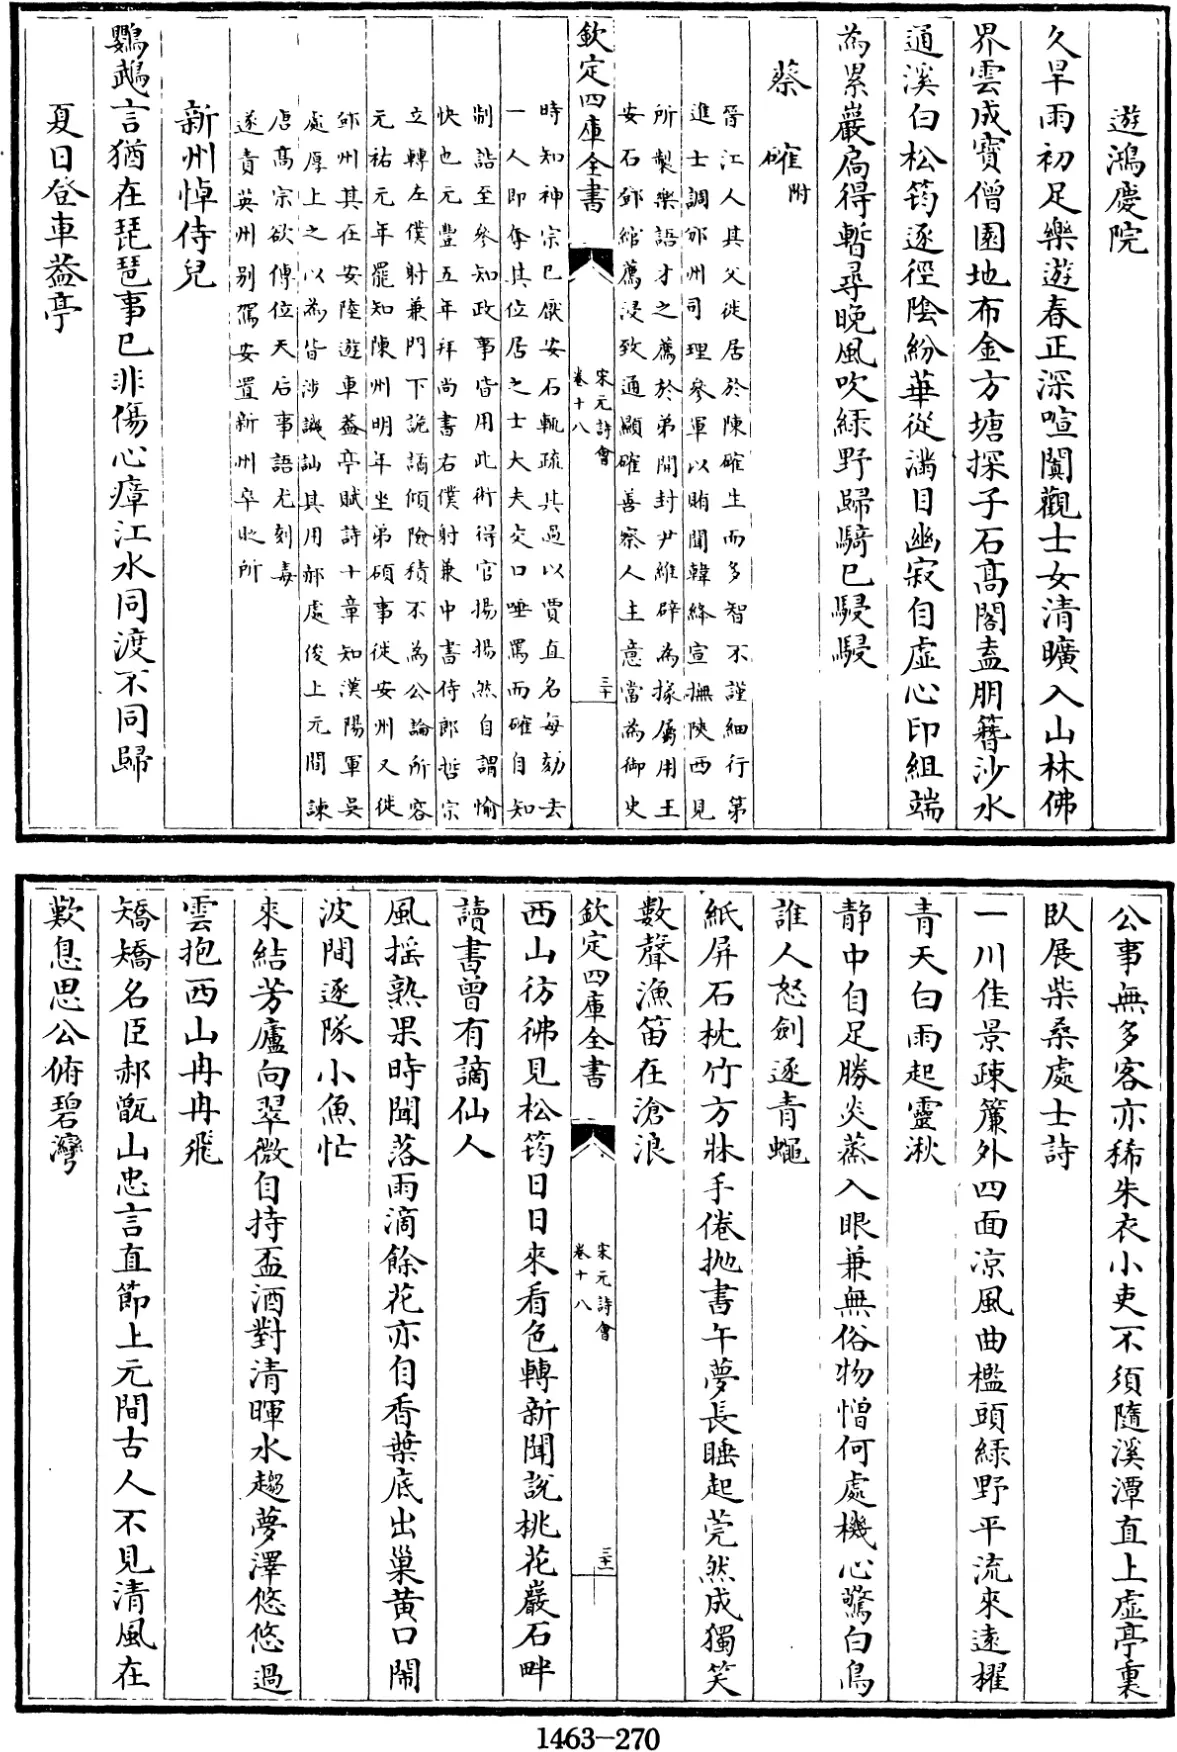 遊鴻慶院
久旱雨初足樂遊春正深喧闐觀士女清曠入山林佛
界雲成寶僧園地布金方塘探子石髙閣盍朋簪沙水
通溪白松筠逐徑陰紛華從滿目幽寂自虛心印組端
為累巖扃得暫尋晚風吹綠野歸騎已駸駸
蔡確附
晉江人其父徙居於陳確生而多智不謹細行第
進士調邠州司理參軍以賄聞韓絳宣撫陜西見
所製樂語才之薦於弟開封尹維辟為掾屬用王
安石鄧綰薦浸致通顯確善察人主意當為御史
欽定四庫全書
宋元詩會
卷十八
三十
時知神宗已厭安石輒疏其過以賈直名每劾去
一人即奪其位居之士大夫交口唾罵而確自知
制誥至參知政事皆用此術得官揚揚然自謂愉
快也元豐五年拜尚書右僕射兼中書侍郎哲宗
立轉左僕射兼門下詭譎傾險積不為公論所容
元祐元年罷知陳州明年坐弟碩事徙安州又徙
鄧州其在安陸遊車葢亭賦詩十章知漢陽軍吳
處厚上之以為皆涉譏訕其用郝處俊上元間諫
唐髙宗欲傳位天后事語尤刻毒
遂責英州別駕安置新州卒於所
新州悼侍兒
鸚鵡言猶在琵琶事已非傷心瘴江水同渡不同歸
夏日登車葢亭
公事無多客亦稀朱衣小吏不須隨溪潭直上虛亭裏
臥展柴桑處士詩
一川佳景疎簾外四面凉風曲檻頭綠野平流來遠櫂
青天白雨起靈湫
静中自足勝炎蒸入眼兼無俗物憎何處機心驚白鳥
誰人怒劍逐青蠅
紙屏石枕竹方牀手倦抛書午夢長睡起莞然成獨笑
數聲漁笛在滄浪
欽定四庫全書
宋元詩會
卷十八
三十一
西山彷彿見松筠日日來看色轉新聞說桃花巖石畔
讀書曾有謫仙人
風搖熟果時聞落雨滴餘花亦自香葉底出巢黄口鬧
波間逐隊小魚忙
來結芳廬向翠微自持盃酒對清暉水趨夢澤悠悠過
雲抱西山冉冉飛
矯矯名臣郝甑山忠言直節上元間古人不見清風在
歎息思公俯碧灣
1463-270